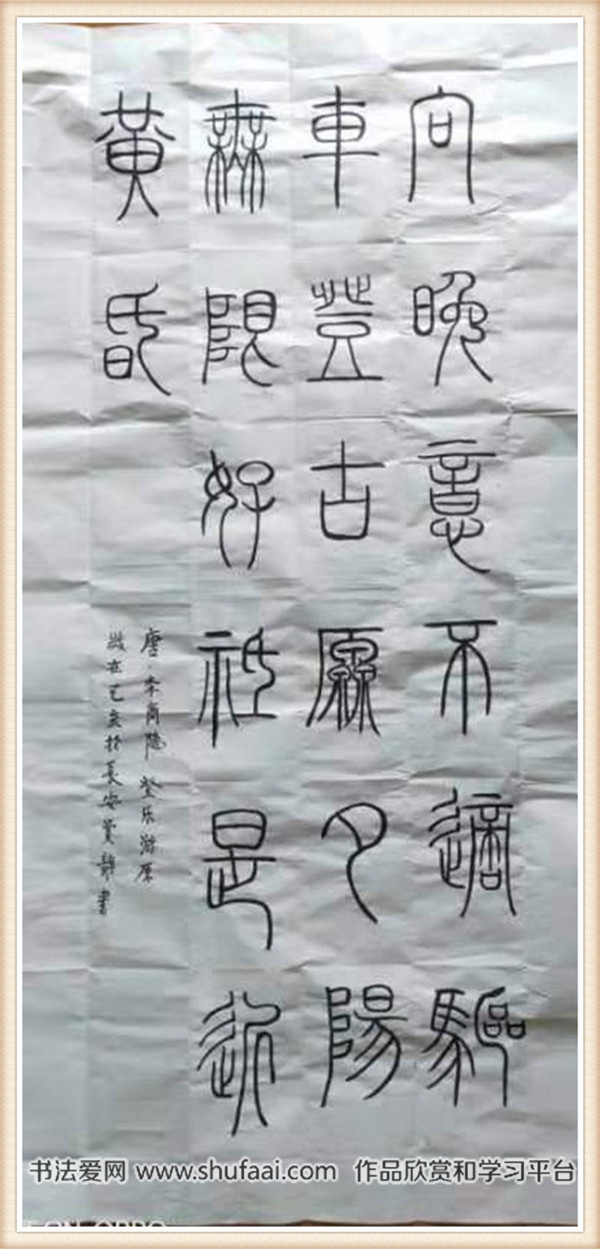 向晚意不適驅
車登古原夕陽
無限好祗是近
黃昏
唐·李商隐登乐游原
歲在己亥於長安
书法爱网 www.shufaai.com 作品欣赏和学习平台